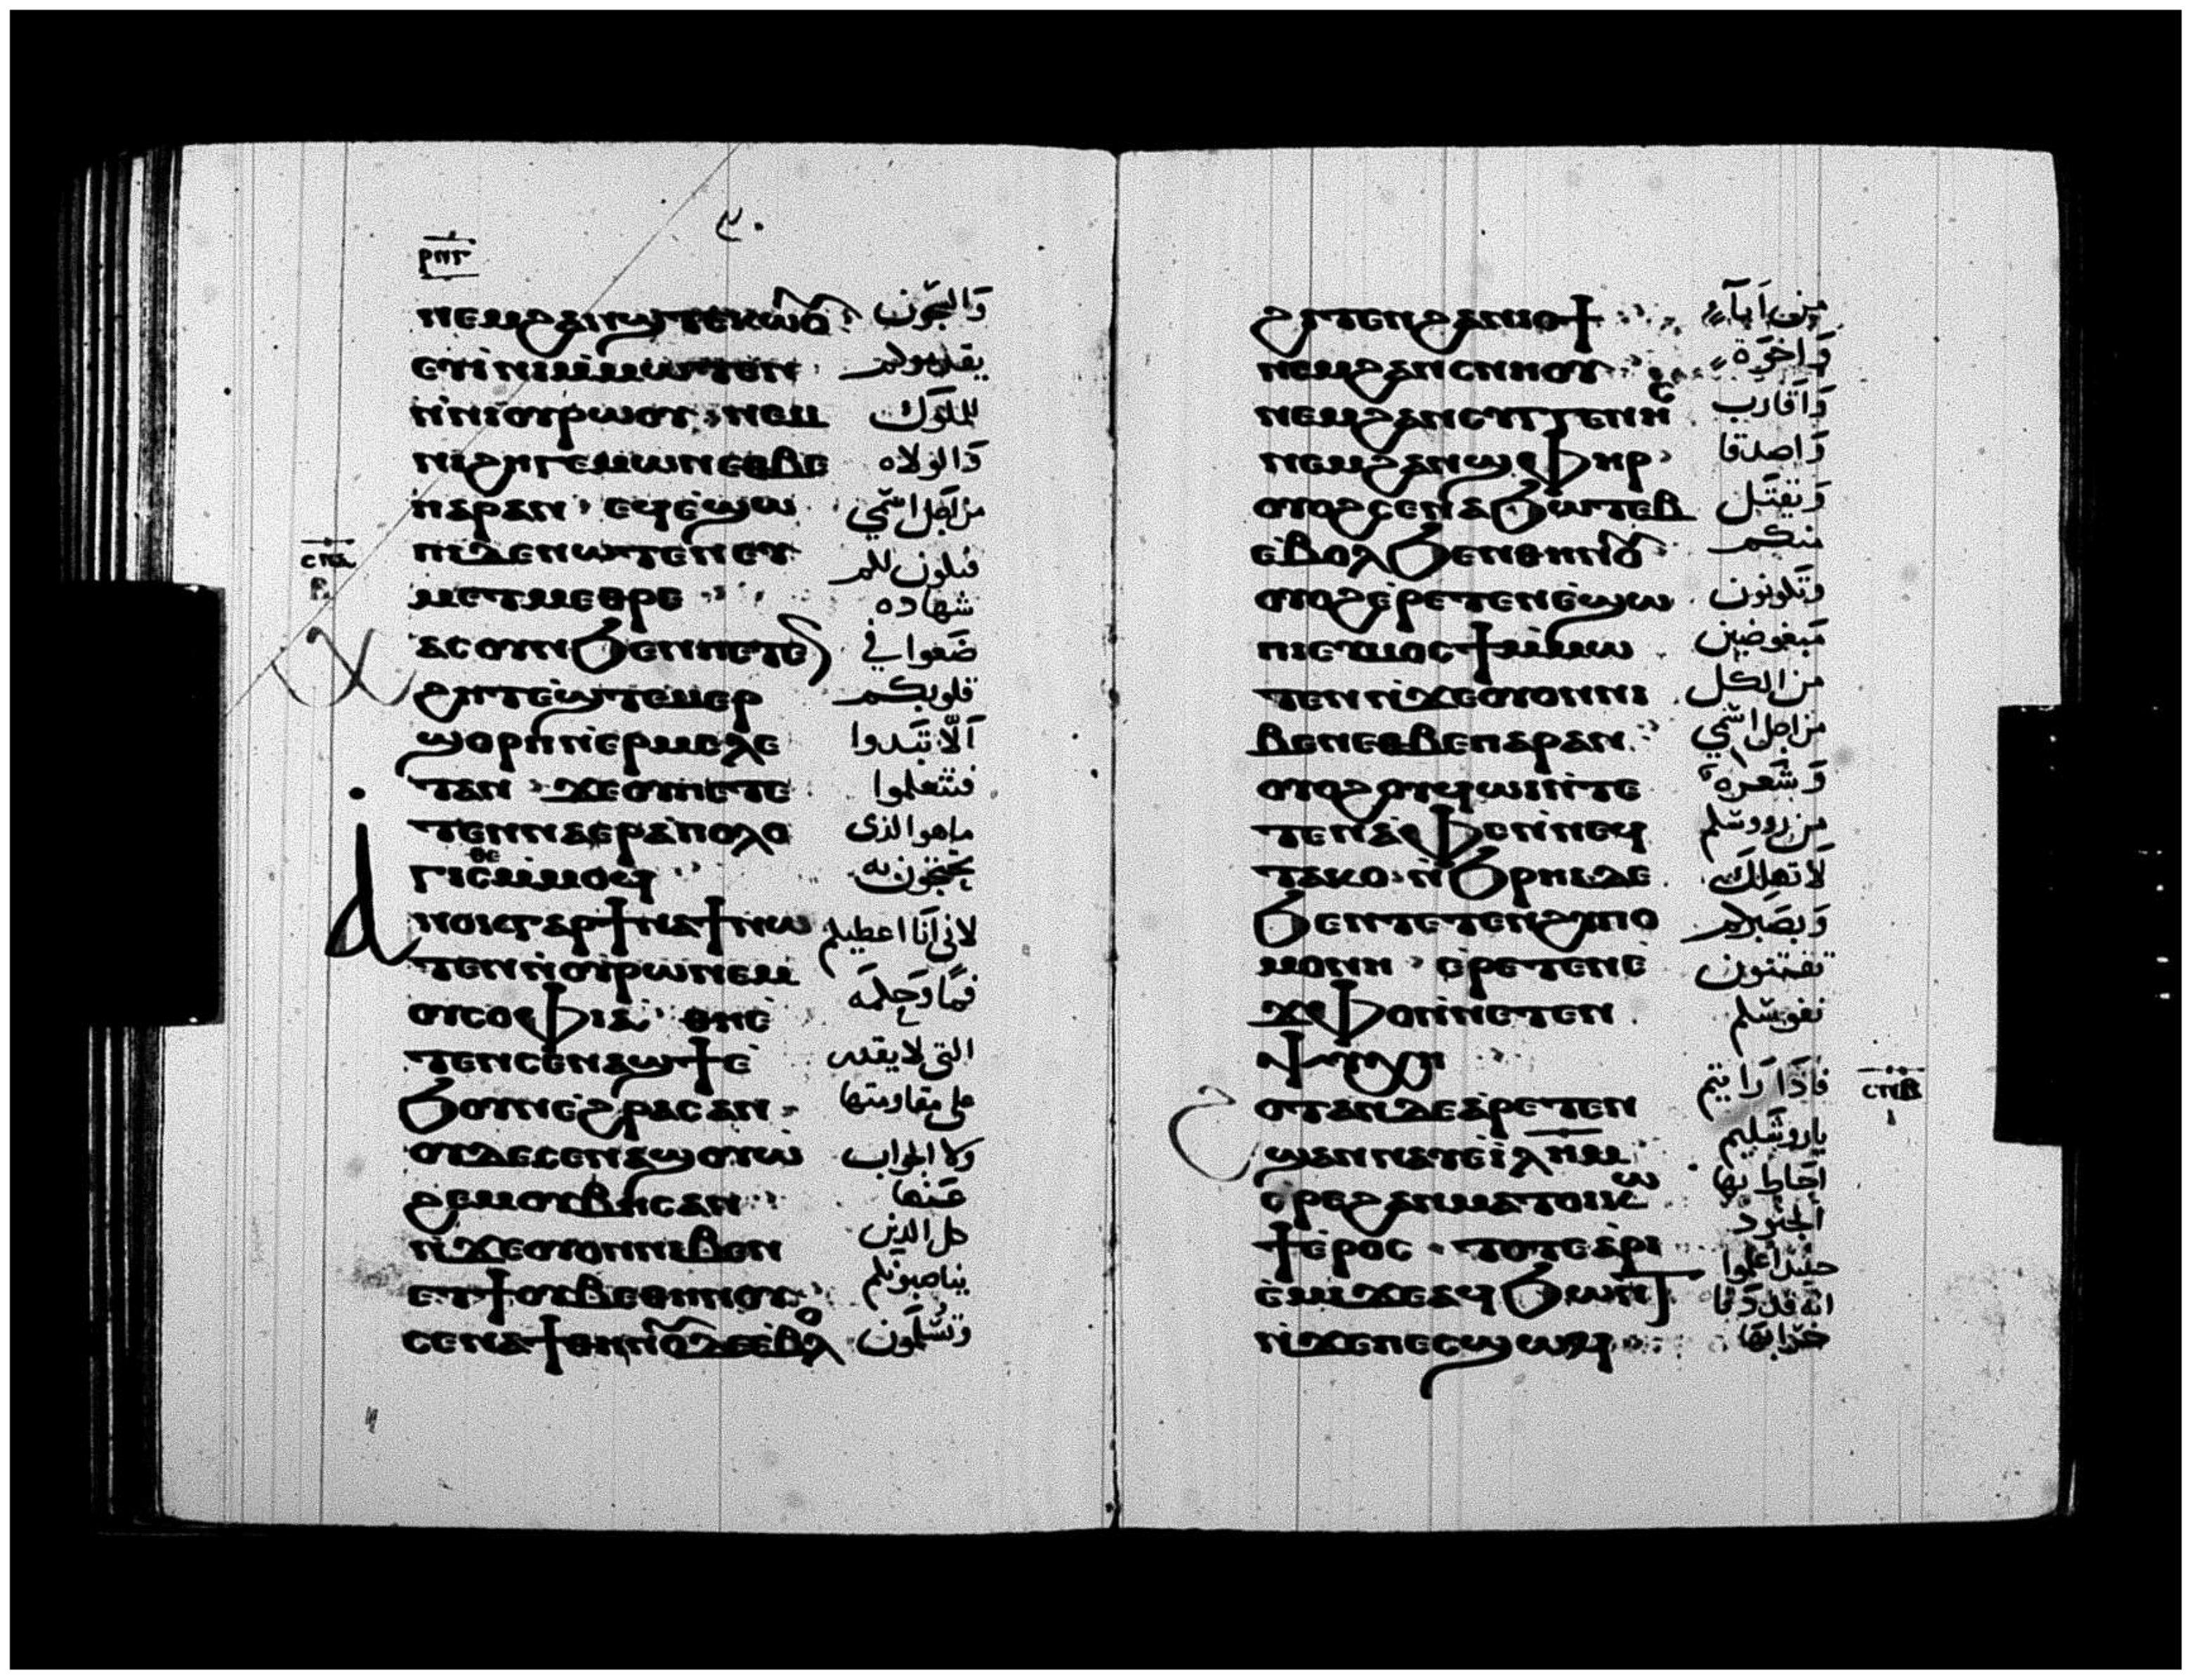 ⲣⲛⲅ
٣٠
ⲛⲉⲙϩⲁⲛϣⲧⲉⲕⲱⲟⲩ وَالسجُون
ⲉⲩⲓ̀ⲛⲓⲙ̀ⲙⲱⲧⲉⲛ يقدمولم
ⲛ̀ⲛⲓⲟⲩⲣⲱⲟⲩ ⲛⲉⲙ للملوك
ⲛⲓϩⲏⲅⲉⲙⲱⲛⲉⲑⲃⲉ وَالولاه
ⲡⲁⲣⲁⲛ ⲉϥⲉ̀ϣⲱ من اجل اسمي
ⲡⲓⲇⲉⲛⲱⲧⲉⲛⲉⲩ فىكون لكم
ⲙⲉⲧⲙⲉⲑⲣⲉ شهاده
ⲭⲁⲥⲟⲩⲛϧⲉⲛⲛⲉⲧⲉⲛ ضَعوا في
ϩⲏⲧⲉ̀ϣⲧⲉⲙⲉⲣ قلوبكم
ϣⲟⲣⲡⲛ̀ⲉⲣⲙⲉⲗⲉ اَلّا تبَدوا
ⲧⲁⲛ ϫⲉⲟⲩⲡⲉⲧⲉ فتتعلموا
ⲧⲉⲛⲛⲁⲉⲣⲁ̀ⲡⲟⲗⲟ ماهو الذى
ⲅⲓⲥⲑⲉⲙ̀ⲙⲟϥ تحتجون به
ⲁⲛⲟⲕⲅⲁⲣϯⲛⲁϯⲛⲱ لانى اَنا اعطيكم
ⲧⲉⲛⲛ̀ⲟⲩⲣⲱⲛⲉⲙ فمًا وَحكمَه
ⲟⲩⲥⲟⲫⲓⲁ̀ ⲑⲏⲉ̀
ⲧⲉⲛⲥⲉⲛⲁϣϯⲉ̀ التى لا يقدر
ϧⲟⲩⲛⲉ̀ϩⲣⲁⲥⲁⲛ على مقاومتها
ⲟⲩⲇⲉⲥⲉⲛⲁϣⲟⲩⲱ ولا الجواب
ϩⲉⲙⲟⲩⲃⲏⲥⲁⲛ عَنها
ⲛ̀ϫⲉⲟⲩⲟⲛⲛⲓⲃⲉⲛ كل الدين
ⲉⲧϯⲟⲩⲃⲉⲑⲏⲛⲟⲩ يناصبونكم
ⲥⲉⲛⲁϯⲑⲏⲛⲟⲩⲇⲉⲉ̀ⲃⲟⲗ وَتسَلّمون
ⲥⲛⲁ
ⲃ
ϩⲓⲧⲉⲛϩⲁⲛⲓⲟϯ من اَبآء
ⲛⲉⲙϩⲁⲛⲥⲛⲏⲟⲩ وَاخوَة
ⲛⲉⲙϩⲁⲛⲥⲩⲅⲅⲉⲛⲏⲥ وَاَقارب
ⲛⲉⲙϩⲁⲛϣⲫⲏⲣ وَاصدقا
ⲟⲩⲟϩⲥⲉⲛⲁϧⲱⲧⲉⲃ وَيقتَل
ⲉⲃⲟⲗϧⲉⲛⲑⲏⲛⲟⲩ منكم
ⲟⲩⲟϩⲉ̀ⲣⲉⲧⲉⲛⲉ̀ϣⲱ وَتكونون
ⲡⲓⲉⲩⲙⲟⲥϯⲙ̀ⲙⲱ مَبغوضين
ⲧⲉⲛⲛ̀ϫⲉⲟⲩⲟⲛⲛⲓ من الكل
ⲃⲉⲛⲉⲑⲃⲉⲡⲁⲣⲁⲛ من اجل اسمي
ⲟⲩⲟϩⲟⲩϥⲱⲓⲛ̀ⲧⲉ وَشعرَة
ⲧⲉⲛⲁ̀ⲫⲉⲛ̀ⲛⲉϥ من رووسكم
ⲧⲁⲕⲟ ⲛ̀ϧⲣⲏⲓⲇⲉ لا تهلك
ϧⲉⲛⲧⲉⲧⲉⲛϩⲩⲡⲟ وَبصَبركم
ⲙⲟⲛⲏ ⲉ̀ⲣⲉⲧⲉⲛⲉ̀ تقتنون
ϫⲫⲟⲛ̀ⲛⲉⲧⲉⲛ نفوسكم
ⲯⲩⲭⲏ
ⲟⲧⲁⲛⲇⲉⲁ̀ⲣⲉⲧⲉⲛ فاذَا رَايتم
ϣⲁⲛⲛⲁⲩⲉ̀ⲓ̀ⲗⲏⲙ ياروشليم
ⲉⲣⲉϩⲁⲛⲙⲁⲧⲟⲓⲕⲱ احاط بها
ϯⲉ̀ⲣⲟⲥ ⲧⲟⲧⲉⲁ̀ⲣⲓ الجنود
ⲉ̀ⲙⲓϫⲉⲁϥϧⲱⲛⲧ حينئذ اعلموا
ⲛ̀ϫⲉⲡⲉⲥϣⲱϥ انه قد دَنا
خرابها
ⲥⲛⲃ
ⲓ